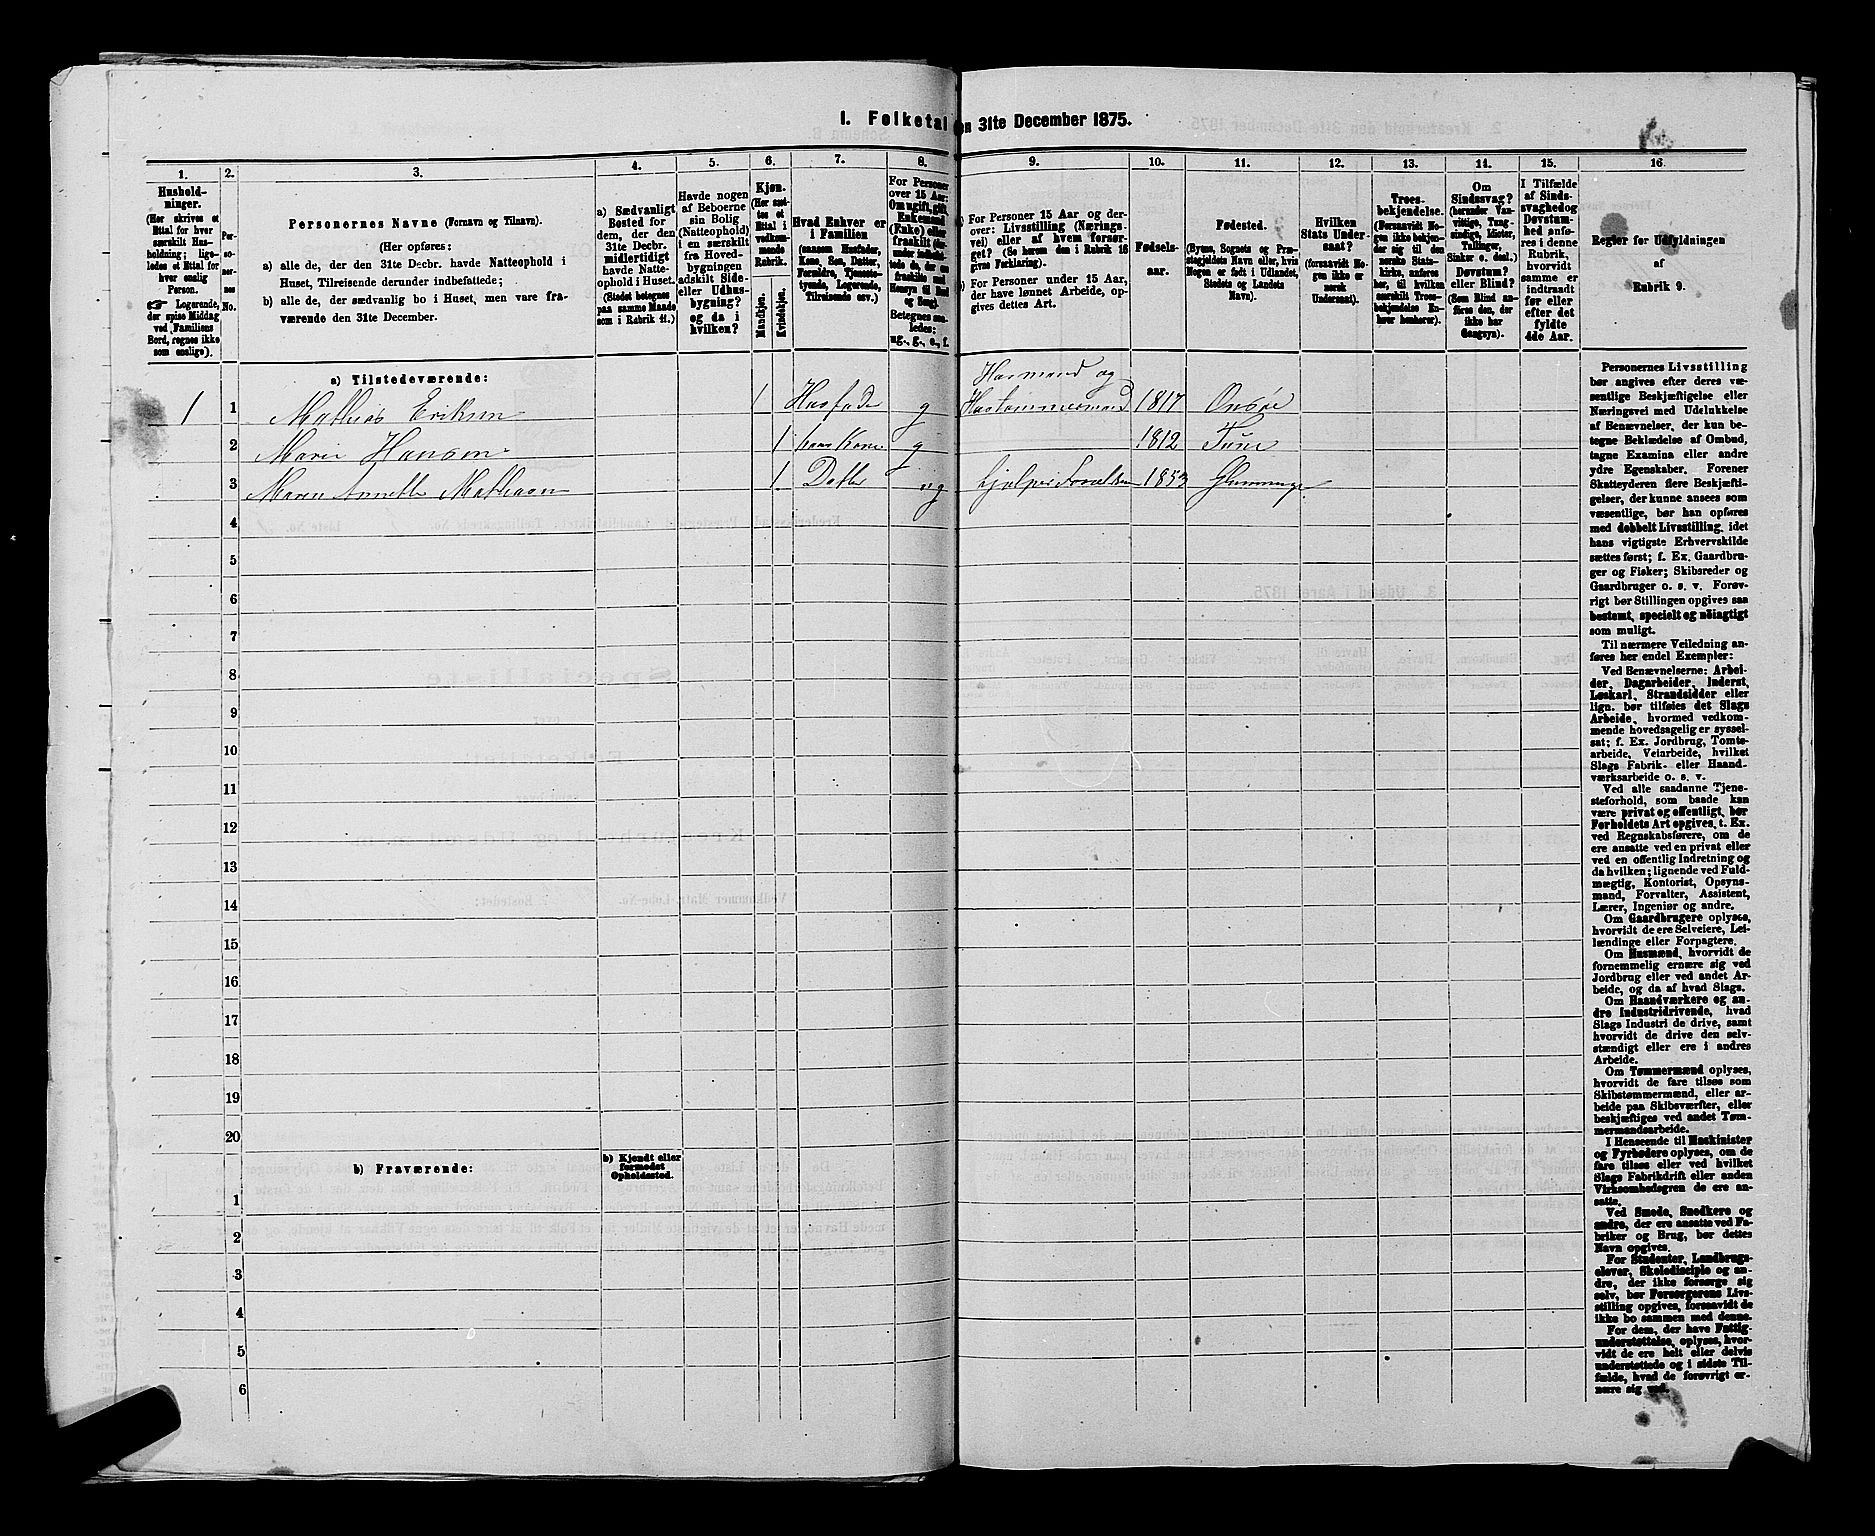 I. Folketal
en 31te December 1875.
1.
Hushold-
ninger.
(Her skrives et
Ettal for hver
særskilt Hus-
holdning; lige-
ledes et Ettal for
hver enslig
Person.
☞ Logerende,
der spise Middag
ved Familiens
Bord, regnes ikke
som enslige).
2.
Per-
so-
ner-
nes
No.
3.
Personernes Navne (Fornavn og Tilnavn).
(Her opføres:
a) alle de, der den 31te Decbr. havde Natteophold i
Huset, Tilreisende derunder indbefattede;
b) alle de, der sædvanlig bo i Huset, men vare fra-
værende den 31te December.
4.
a) Sædvanligt
Bosted for
dem, der den
31te Decbr.
midlertidigt
havde Natte-
ophold i Huset.
(Stedet betegnes
paa samme Maade
som i Rubrik 11.)
5.
Havde nogen
af Beboerne
sin Bolig
(Natteophold)
i en særskilt
fra Hoved-
bygningen
adskilt Side-
eller Udhus-
bygning?
og da i
hvilken?
6.
Kjøn.
(Her sæt-
tes et
Ettal i
vedkom-
mende
Rubrik.
Mandkjøn.
Kvindekjøn.
7.
Hvad Enhver er
i Familien
(saasom Husfader,
Kone, Søn, Datter,
Forældre, Tjeneste-
tyende, Logerende,
Tilreisende osv.)
8.
For Personer
over 15 Aar:
Om ugift, gift,
Enkemand
(Enke) eller
fraskilt (der-
under indbefat-
tede de, der ere
fraskilte med
Hensyn til Bord
og Seng).
Betegnes saa-
ledes:
ug., g., e., f.
9.
a) For Personer 15 Aar og der-
over: Livsstilling (Nærings-
vei) eller af hvem forsør-
get? (Se herom den i Rubrik 16
givne Forklaring).
b) For Personer under 15 Aar,
der have lønnet Arbeide, op-
gives dettes Art.
10.
Fødsels-
aar.
11.
Fødested.
(Byens, Sognets og Præ-
stegjeldets Navn eller, hvis
Nogen er født i Udlandet,
Stedets og Landets
Navn).
12.
Hvilken
Stats Under-
saat?
(forsaavidt No-
gen ikke er
norsk
Undersaat).
13.
Troes-
bekjendelse.
(Forsaavidt No-
gen ikke bekjen-
der sig til den
norske Stats-
kirke, anføres
her, til hvilken
særskilt Troes-
bekjendelse En-
hver henhører).
14.
Om
Sindssvag?
(herunder Van-
vittige, Tung-
sindige, Idioter,
Tullinger,
Sinker o. desl.)
Døvstum?
eller Blind?
(Som Blind an-
føres den, der
ikke har
Gangsyn).
15.
I Tilfælde
af Sinds-
svaghed og
Døvstum-
hed anfø-
res i denne
Rubrik,
hvorvidt
samme er
indtraadt
før eller
efter det
fyldte
4de Aar.
16
Regler for Udfyldningen
af
Rubrik 9.
a) Tilstedeværende:
Husmand og
1 1 Mathias Eriksen 1 Husfader g Hustømmermand 1817 Onsøe
2 Marie Hansen 1 hans Kone g 1812 Tune
3 Maren Annette Mathisen 1 Datter ug hjelper Forældrene 1853 Glemminge
4
5
6
7
8
9
10
11
12
13
14
15
16
17
18
19
20
b) Fraværende:
b) Kjendt eller
formodet
Opholdssted.
1
2
3
4
5
6
Personernes Livsstilling
bør angives efter deres væ-
sentlige Beskjæftigelse eller
Næringsvei med Udelukkelse
af Benævnelser, der kun be-
tegne Beklædelse af Ombud,
tagne Examina eller andre
ydre Egenskaber. Forener
Skatteyderen flere Beskjæfti-
gelser, der kunne ansees som
væsentlige, bør han opføres
med dobbelt Livsstilling, idet
hans vigtigste Erhvervskilde
sættes først; f. Ex. Gaardbru-
ger og Fisker; Skibsreder og
Gaardbruger o. s. v. Forøv-
rigt bør Stillingen opgives saa
bestemt, specielt og nøiagtigt
som muligt.
Til nærmere Veiledning an-
føres her endel Exempler:
Ved Benævnelserne: Arbei-
der, Dagarbeider, Inderst,
Løskarl, Strandsidder eller
lign. bør tilføies det Slags
Arbeide, hvormed vedkom-
mende hovedsagelig er syssel-
sat; f. Ex. Jordbrug, Tomte-
arbeide, Veiarbeide, hvilket
Slags Fabrik- eller Haand-
værksarbeide o. s. v.
Ved alle saadanne Tjene-
steforhold, som baade kan
være privat og offentligt, bør
Forholdets Art opgives, t. Ex.
ved Regnskabsførere, om de
ere ansatte ved en privat eller
ved en offentlig Indretning og
da hvilken; lignende ved Fuld-
mægtig, Kontorist, Opsyns-
mand, Forvalter, Assistent,
Lærer, Ingeniør og andre.
Om Gaardbrugere oplyses,
hvorvidt de ere Selveiere, Lei-
lændinge eller Forpagtere.
Om Husmænd, hvorvidt de
fornemmelig ernære sig ved
Jordbrug eller ved andet Ar-
beide, og da af hvad Slags.
Om Haandværkere og an-
dre Industridrivende, hvad
Slags Industri de drive, samt
hvorvidt de drive den selv-
stændigt eller ere i andres
Arbeide.
Om Tømmermænd oplyses,
hvorvidt de fare tilsøs som
Skibstømmermænd, eller ar-
beide paa Skibsværfter, eller
beskjæftiges ved andet Tøm-
mermandsarbeide.
I Henseende til Maskinister
og Fyrbødere oplyses, om de
fare tilsøs eller ved hvilket
Slags Fabrikdrift eller anden
Virksomhedsgren de ere an-
satte.
Ved Smede, Snedkere og
andre, der ere ansatte ved Fa-
briker og Brug, bør dettes
Navn opgives.
For Studenter, Landbrugs-
elever, Skoledisciple og an-
dre, der ikke forsørge sig
selv, bør Forsørgerens Livs-
stilling opgives, forsaavidt de
ikke bo sammen med denne.
For dem, der have Fattig-
understøttelse, oplyses, hvor-
vidt de ere helt eller delvis
understøttede og i sidste Til-
fælde, hvad de forøvrigt er-
nære sig ved.